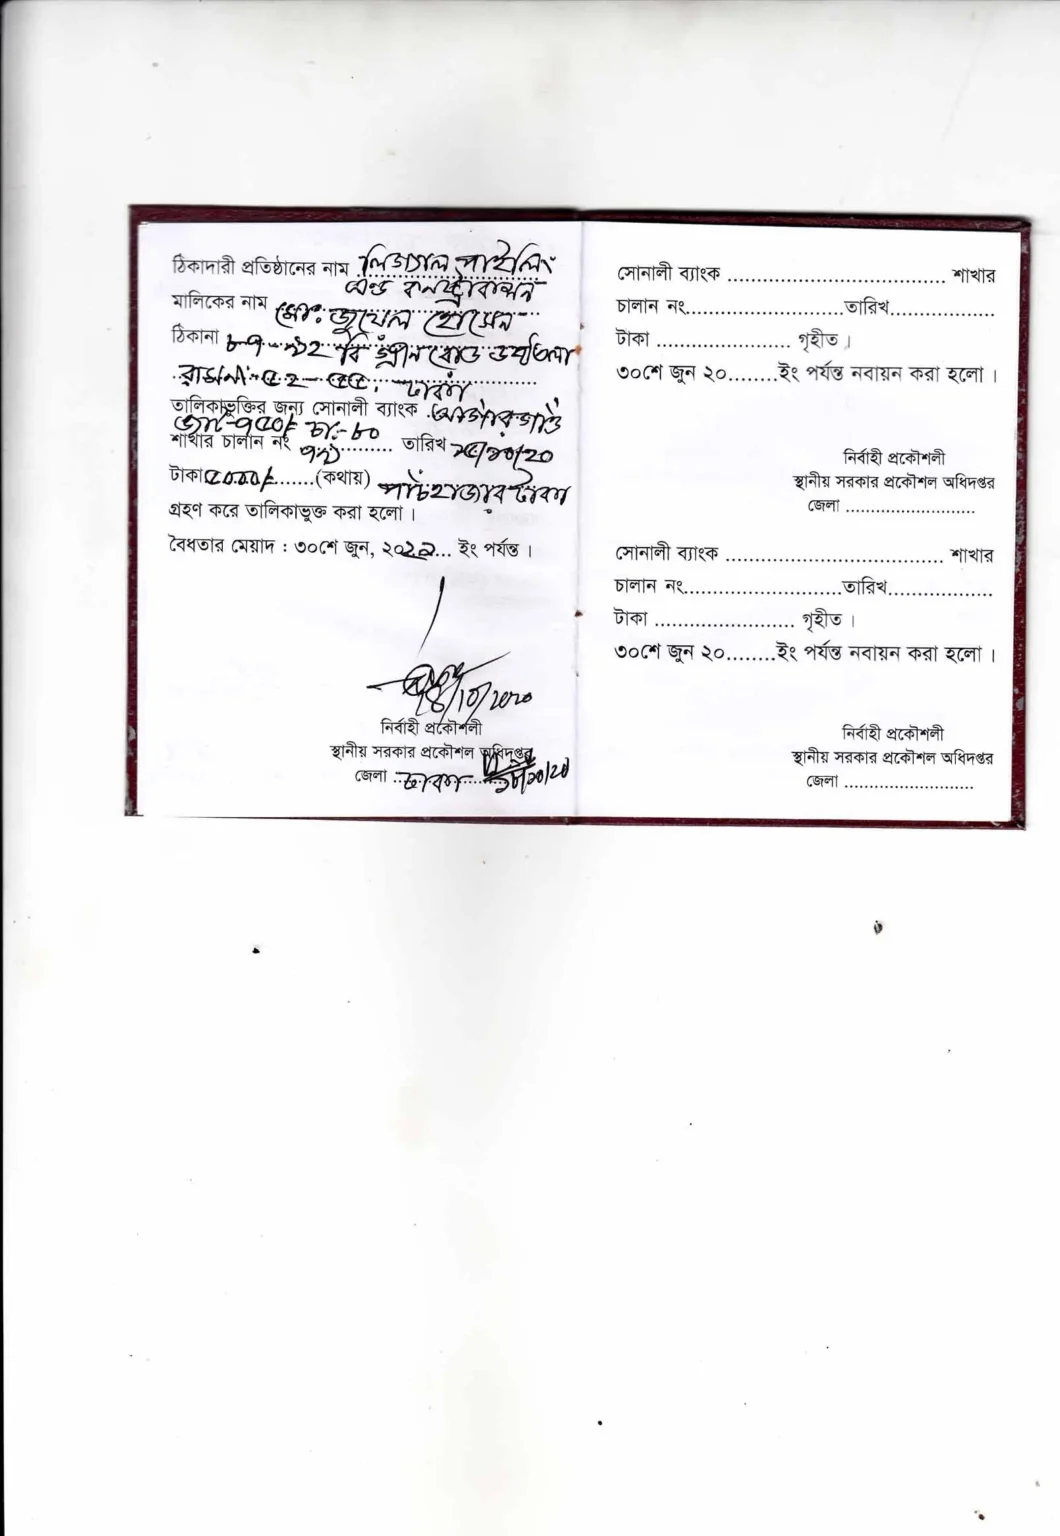 ঠিকাদারী প্রতিষ্ঠানের নাম লিজ্যাল পাইলিং
এন্ড কনস্ট্রাকশন
মালিকের নাম মোঃ জুয়েল হোসেন
ঠিকানা ৮৭-৯২ বি গ্রীন রোড ৬ষ্ঠতলা
৫২-৫৫, ঢাকা
তালিকাভুক্তির জন্য সোনালী ব্যাংক আগারগাঁও
জা-৭৫০/- চা:-৮০
শাখার চালান নং ৭৯ তারিখ ১৫/১০/২০
টাকা ৫০০০/-......(কথায়) পাঁচ হাজার টাকা
গ্রহণ করে তালিকাভুক্ত করা হলো ।
বৈধতার মেয়াদ : ৩০শে জুন, ২০২১... ইং পর্যন্ত ।
/10/2020
নির্বাহী প্রকৌশলী
স্থানীয় সরকার প্রকৌশল অধিদপ্তর
জেলা ..ঢাকা.. ১৮/১০/২০
সোনালী ব্যাংক .................................... শাখার
চালান নং..........................তারিখ..................
টাকা ....................... গৃহীত ।
৩০শে জুন ২০........ইং পর্যন্ত নবায়ন করা হলো ।
নির্বাহী প্রকৌশলী
স্থানীয় সরকার প্রকৌশল অধিদপ্তর
জেলা ..........................
সোনালী ব্যাংক .................................... শাখার
চালান নং..........................তারিখ..................
টাকা ........................ গৃহীত ।
৩০শে জুন ২০........ইং পর্যন্ত নবায়ন করা হলো ।
নির্বাহী প্রকৌশলী
স্থানীয় সরকার প্রকৌশল অধিদপ্তর
জেলা ..........................